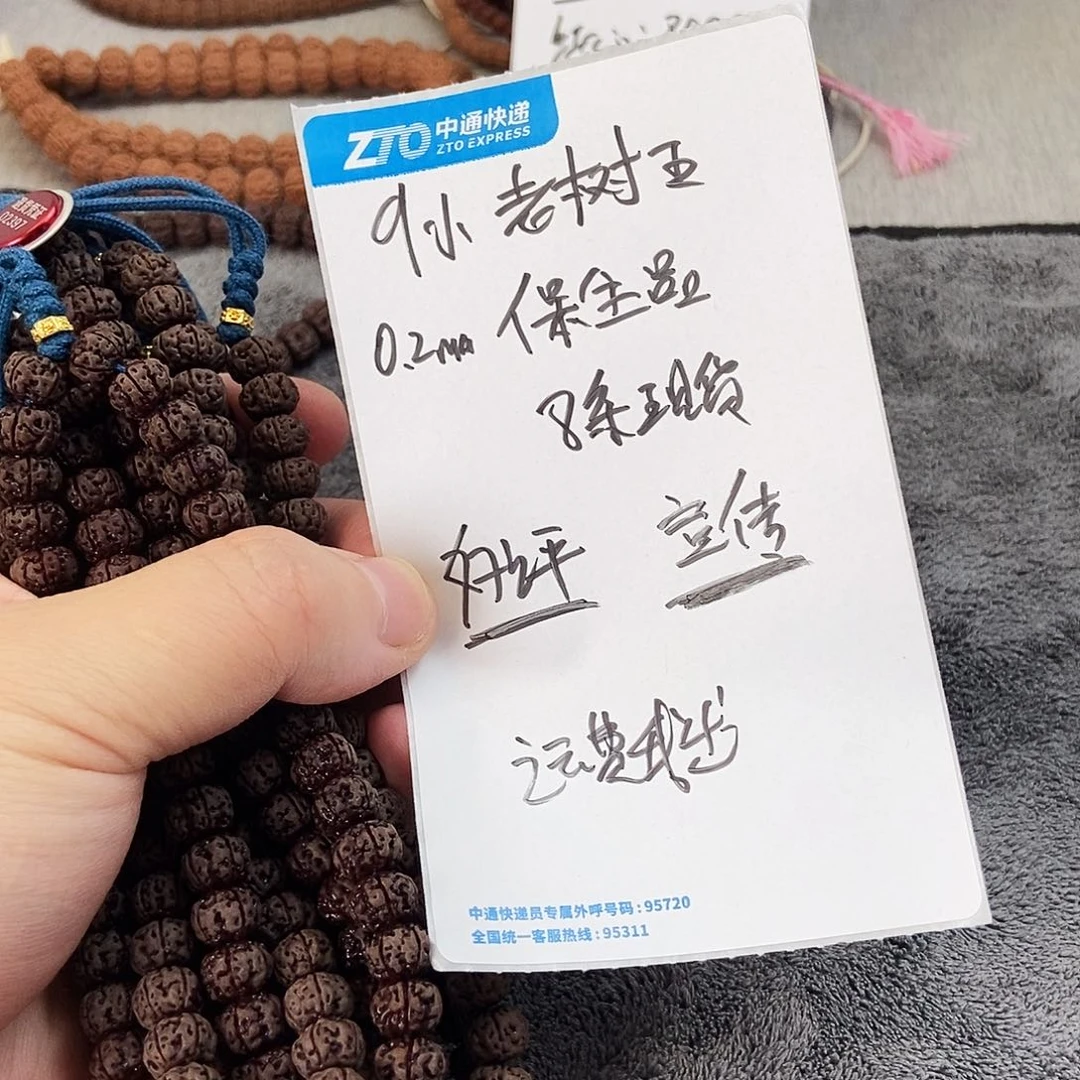 ZTO 中通快递
ZTO EXPRESS
9小 老树王
0.2mm 保全品
8条现货
好评 宣传
运费我出
中通快递员专属外呼号码:95720
全国统一客服热线:95311
02397